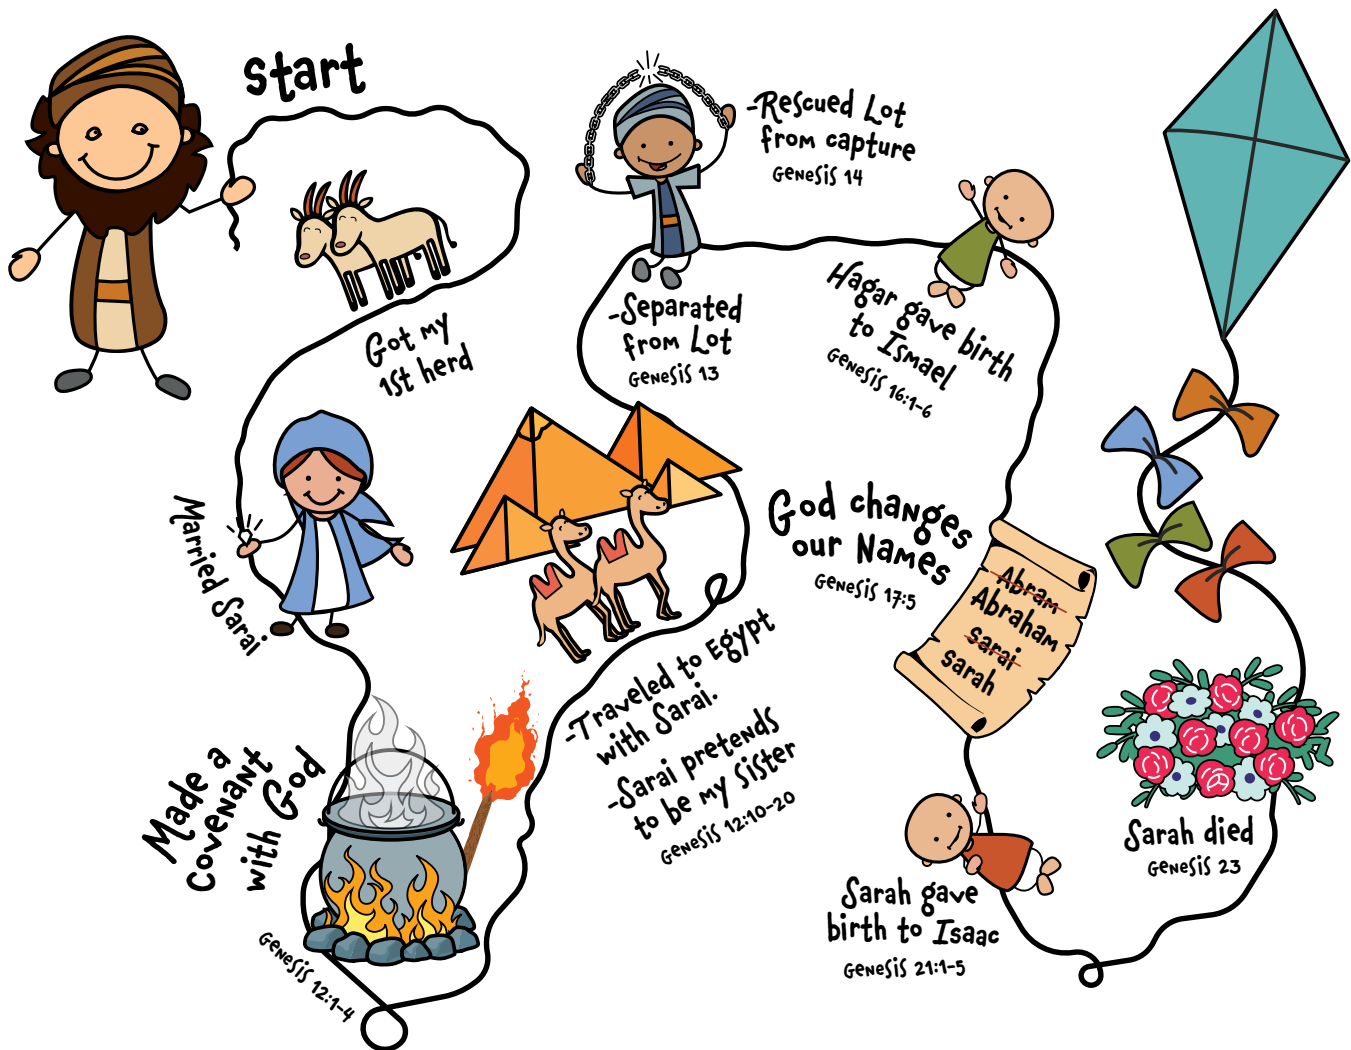 start
Got my
1st herd
Married Sarai
Made a
covenant
with God
Genesis 12:1-4
-Traveled to Egypt
with Sarai.
-Sarai pretends
to be my sister
Genesis 12:10-20
-Separated
from Lot
Genesis 13
-Rescued Lot
from capture
Genesis 14
Hagar gave birth
to Ismael
Genesis 16:1-6
God changes
our Names
Genesis 17:5
Abram
Abraham
sarai
sarah
Sarah gave
birth to Isaac
Genesis 21:1-5
Sarah died
Genesis 23